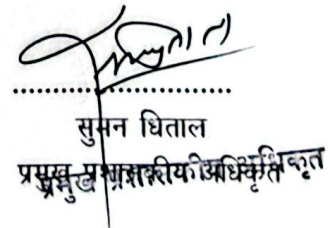 सुमन धिताल
प्रमुख प्रशासकीय अधिकृत